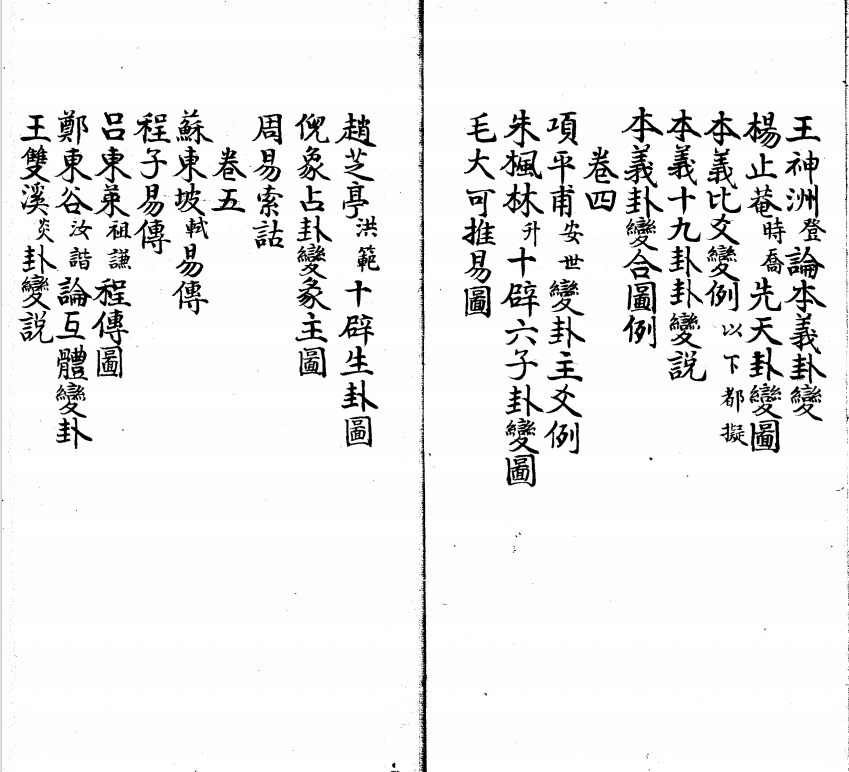 王神洲登論本義卦變
楊止菴時喬先天卦變圖
本義比爻變例以下都擬
本義十九卦卦變説
本義卦變合圖例
卷四
項平甫安世變卦主爻例
朱楓林升十辟六子卦變圖
毛大可推易圖
趙芝亭洪範十辟生卦圖
倪象占卦變彖主圖
周易索詁
卷五
蘇東坡軾易傳
程子易傳
呂東萊祖謙程傳圖
鄭東谷汝諧論互體變卦
王雙溪炎卦變説